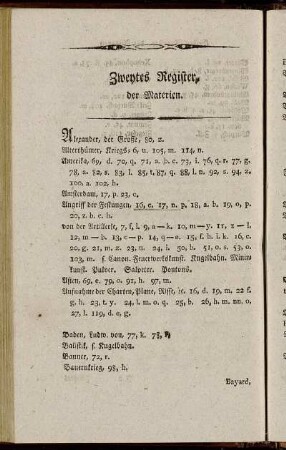 Zweytes Register,
der Materien.
Alexander, der Große, 80, z.
Alterthümer, Kriegs 6, u. 105, m. 114, n.
Amerika, 69, d. 70, q. 71, a. b. c. 73, i. 76, q. r. 77, g.
78, z. 82, s. 83, l. 85, t. 87, q. 88, l. n. 92, z. 94, z.
100, a. 102, h.
Amsterdam, 17, p. 23, c.
Angriff der Festungen, 16, c. 17, n. p. 18, a. b. 19, o. p.
20, z. b. c. h.
von der Artillerie, 7, f. l. 9, a — k. 10, m — y. 11, z — l
12, m — b. 13, c — p. 14, q — e. 15, f. h. i. k. 16, c.
20, g. 21, m. z. 23, m. 24, z. 30, b. 51, o. e. 53, o.
103, m. s. Canon. Feuerwerkskunst. Kugelbahn. Minen
kunst. Pulver. Salpeter. Pontons.
Asien, 69, e. 79, o. 91, h. 97, m.
Aufnahme der Charten, Plane, Risse, ic. 16, d. 19, m. 22 f.
g. h. 23, t. y. 24, l. m. o. q. 25, b. 26, h. m. nn. o.
27, l. 119, d. e. g.
Baden, Ludw. von 77, k. 78,
Balistik, s. Kugelbahn.
Banner, 72, r.
Bauernkrieg, 98, h.
Bayard,